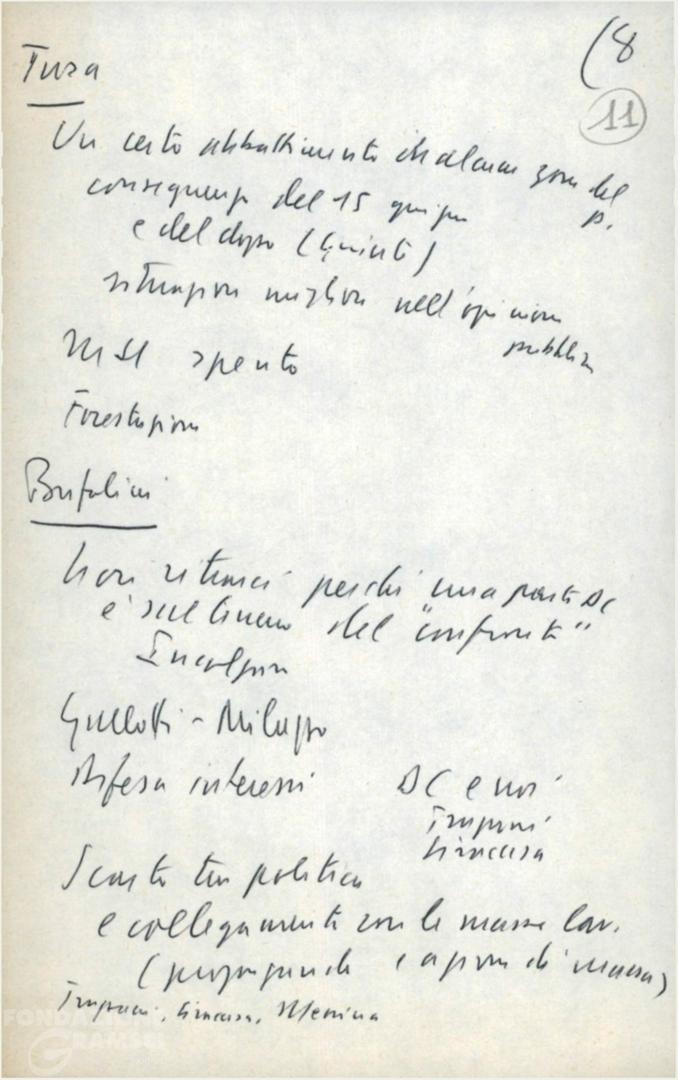 (8
11
Tusa
Un certo abbattimento in alcune zone del
p.
conseguenze del 15 giugno
e del dopo (Giunte)
situazione migliore nell'opinione
pubblica
MSI spento
Forestazione
Bufalini
Non riusci perché una parte DC
è sul lineare del "confronto"
Gullotti - Milazzo
Difesa interessi DC e noi
Trapani
Siracusa
Scarto tra politica
e collegamento con le masse lav.
(propaganda e azione di massa)
Trapani, Siracusa, Messina
FONDAZIONE
GRAMSCI